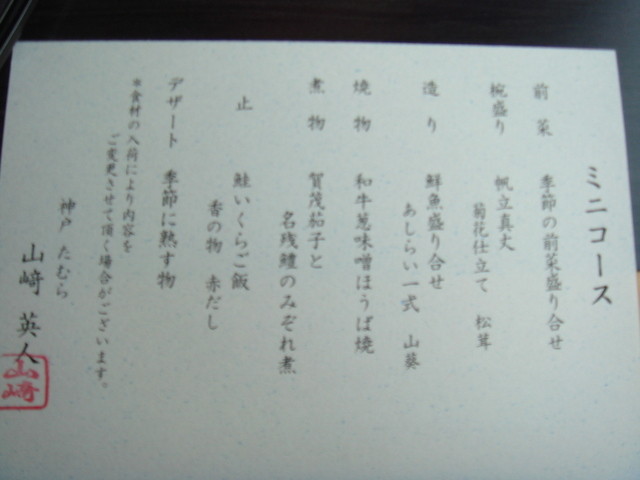 ミニコース
前菜　季節の前菜盛り合せ
椀盛り　帆立真丈
菊花仕立て　松茸
造り　鮮魚盛り合せ
あしらい一式　山葵
焼物　和牛葱味噌ほうば焼
煮物　賀茂茄子と
名残鱧のみぞれ煮
止　鮭いくらご飯
香の物　赤だし
デザート　季節に熟す物
※食材の入荷により内容を
ご変更させて頂く場合がございます。
神戸　たむら
山﨑　英人
山﨑